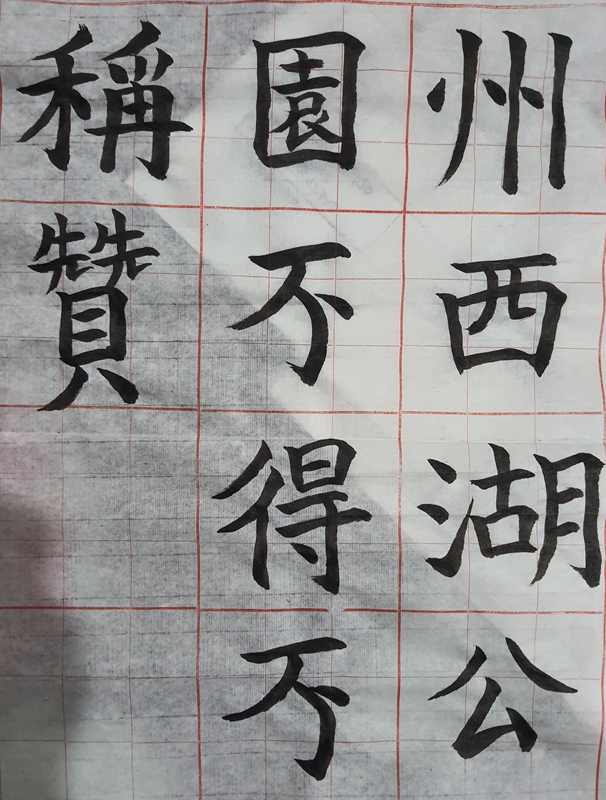 州西湖公
園不得不
稱贊